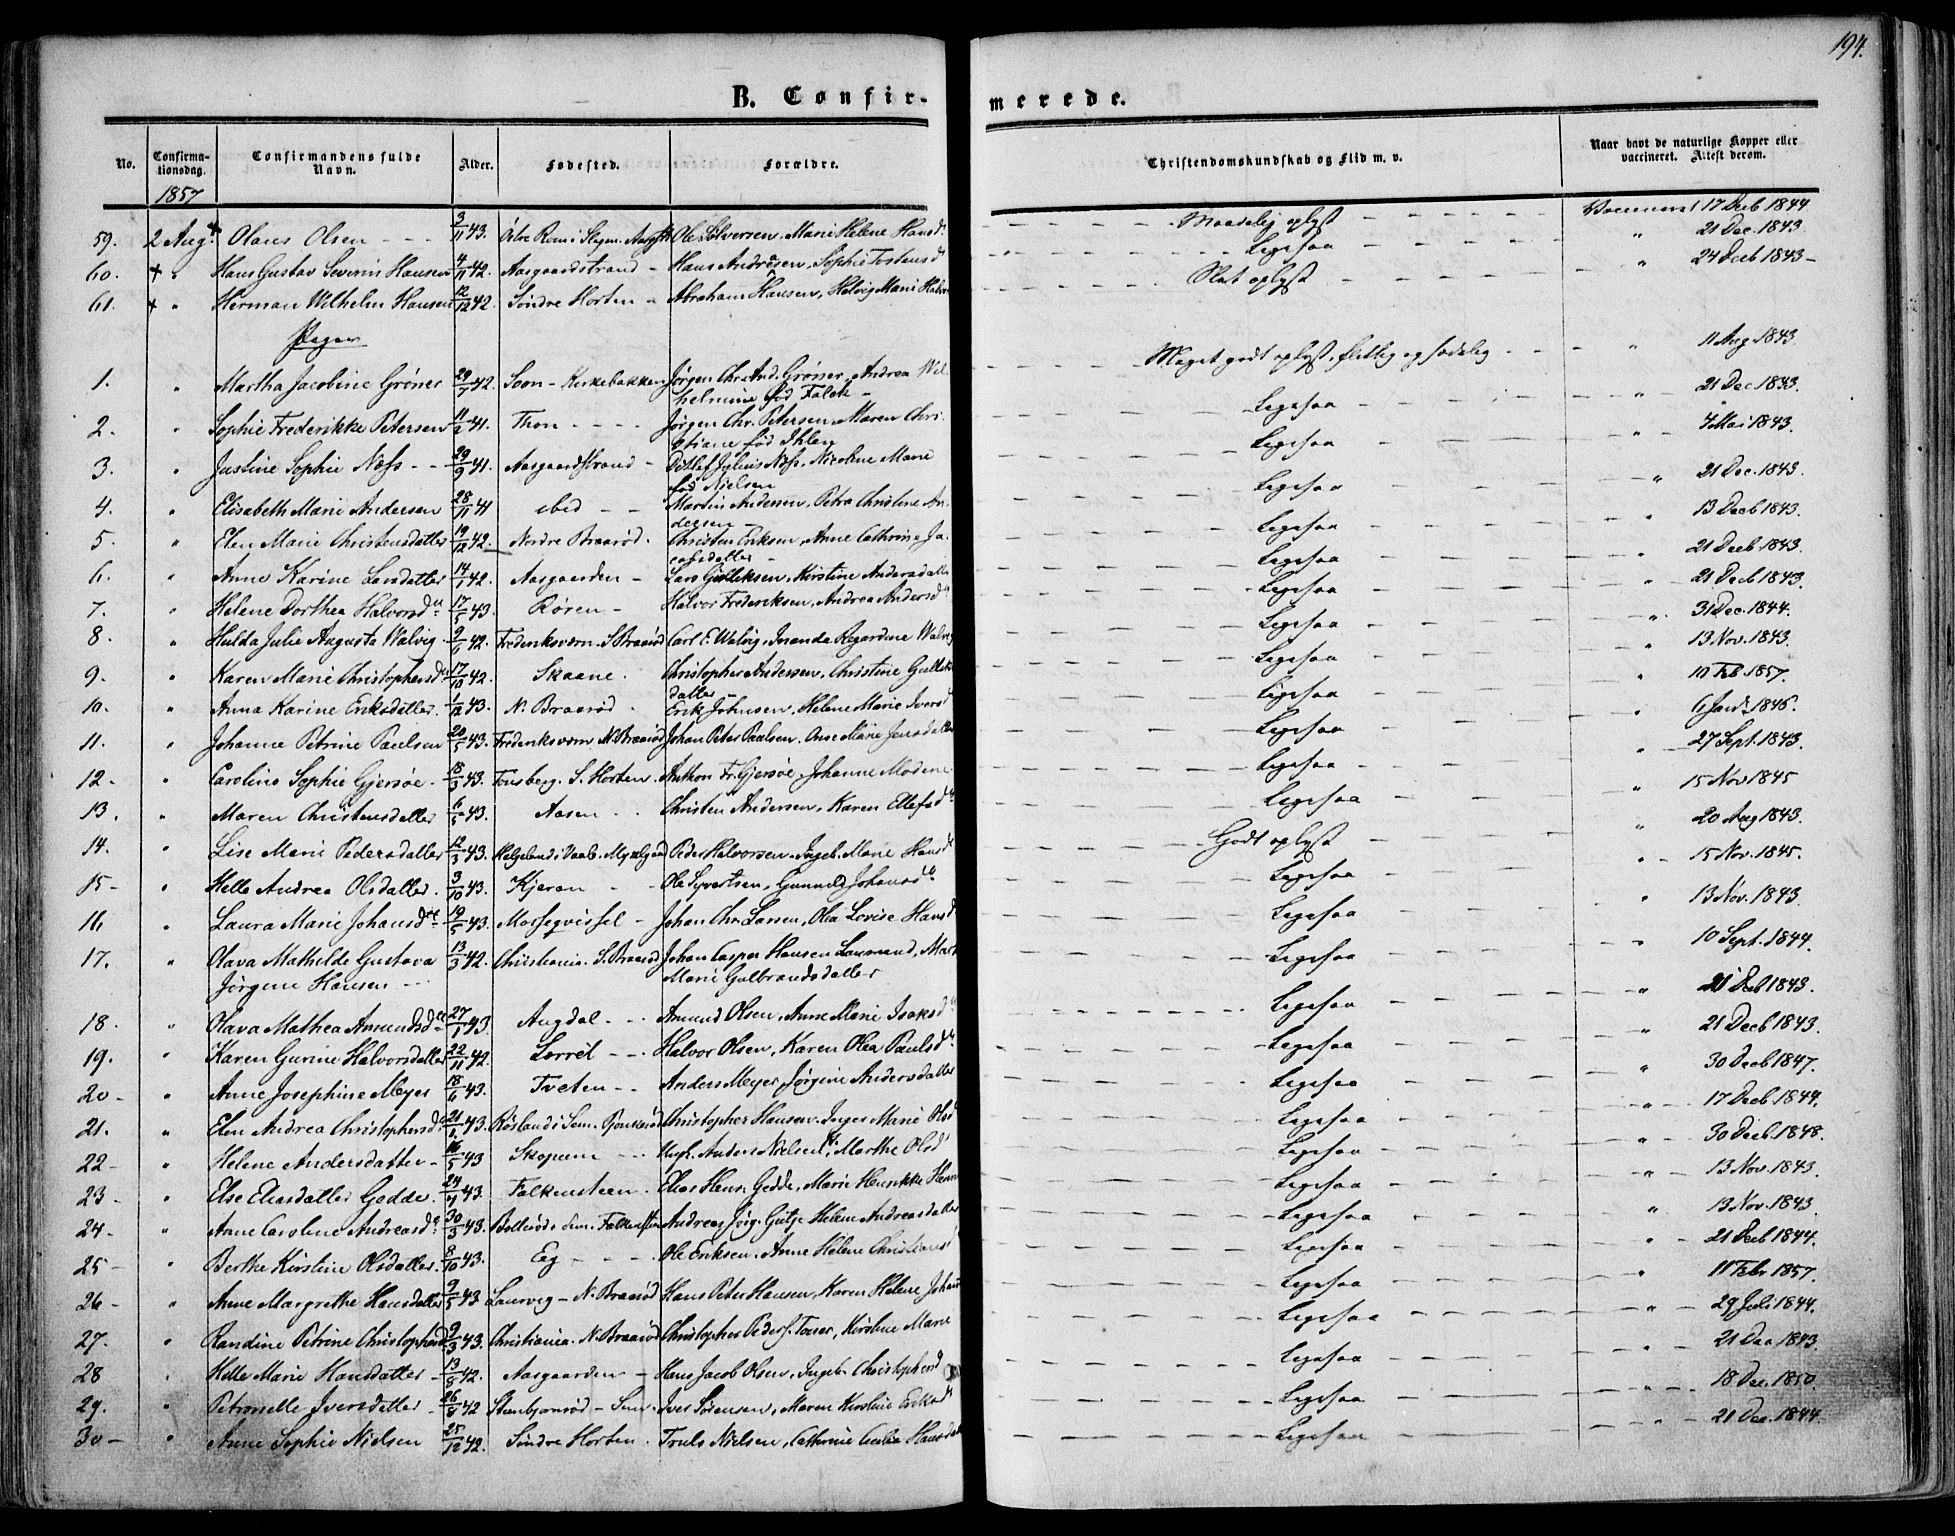 194.
B. Confir-
merede.
No.
Confirma-
tionsdag.
Confirmandens fulde
Navn.
Alder.
Fødested.
Forældre.
Christendomskundskab og Flid m. v.
Naar havt de naturlige Kopper eller
vaccineret. Attest derom.
1857
59. 2 Aug. Olaus Olsen 3/11 43. Ole Sølversen, Marie Helene Hansd. Maadelig oplyst 17 Decb 1844
60. + " Hans Gustav Severin Hansen 4/11 42. Aasgaardstrand Hans Andresen, Sophie Tostensd. Ligesaa " 21 Dec. 1843
61. + " Herman Wilhelm Hansen 12/12 42. Søndre Horten Abraham Hansen, Helvig Marie Slet oplyst " 24 Decb 1843
Piger
1. " Martha Jacobine Grøner 29/7 42. Soon - Kirkebakken Jørgen Chr. And. Grøner, Andrea Wil- Meget godt oplyst, flittig og sædelig " 11 Aug 1843
helmine fød Falck
2. " Sophie Frederikke Petersen 11/2 41. Thon Jørgen Chr. Petersen, Maren Chri- Ligesaa " 21 Dec 1843.
stiane fød Ihlen
3. " Justine Sophie Næss 29/9 41. Aasgaardstrand Ditlef Næss, Nicoline Marie Ligesaa " 7 Mai 1843.
fød Nielsen
4. " Elisabeth Marie Andersen 28/11 41 ibid Martin Andersen, Petra Christine An- Ligesaa " 21 Dec. 1843.
dersen
5. " Elen Marie Christensdatter 19/12 42. Nordre Braarød. Christen Eriksen, Anne Cathrine Ja- Ligesaa " 13 Decb 1843.
cobsdatter
6. " Anne Karine Larsdatter 14/1 42. Aasgaarden Lars Gulliksen, Kirstine Andersdatter Ligesaa " 21 Decb 1843.
7. " Helene Dorthea Halvorsd. 17/5 43. Røren Halvor Frederiksen, Andrea Andersd. Ligesaa " 21 Decb 1843.
8. " Hulda Julie Augusta Walvig 9/6 42. Frederiksværn. S. Braarød Carl E. Walvig, Regardine Walvig Ligesaa " 31 Dec. 1844.
9. " Karen Marie Christophersd. 17/10 42. Skaane. Christopher Andersen, Christine Gulliks- Ligesaa " 13 Nov. 1843.
datter
10. " Anna Karine Eriksdatter. 1/12 43. N. Braarød Erik Johnsen, Helene Marie Iversd. Ligesaa " 10 Feb 1857.
11. " Johanne Petrine Paulsen 20/5 43. Frederiksværn N. Braarød Johan Peter Paulsen. Ane Marie Jensdatter Ligesaa " 6 Jan. 1846.
12 " Caroline Sophie Gjersøe 18/3 43. Tønsberg. S. Horten. Anthon Fr. Gjersøe, Johanne Ligesaa " 27 Sept. 1843.
13. " Maren Christensdatter 6/5 43. Aasen Christen Andersen, Karen Ellefsd. Ligesaa " 15 Nov 1845
14. " Lise Marie Pedersdatter 12/3 43. Peder Halvorsen, Ingeb. Marie Hansd. Godt oplyst " 20 Aug 1843.
15 " Helle Andrea Olsdatter. 3/10 43. Kjæran Ole Syvertsen, Gunnild Johansd. Ligesaa " 15 Nov. 1845.
16. " Laura Marie Johansd. 19/5 43. Johan Chr. Larsen, Olea Lovise Hansd. Ligesaa " 13 Nov. 1843.
17. " Olava Mathilde Gustava 13/3 42. Christiania. S. Braarød Johan Casper Hansen Ligesaa " 10 Sept. 1844.
Jørgine Hansen Marie Gulbrandsdatter
18. " Olava Mathea Amundsd. 27/1 43. Augdal Amund Olsen, Anne Marie Isaksd. Ligesaa " 21 Decb 1843.
19. " Karen Gurine Halvorsdatter 22/11 42. Halvor Olsen, Karen Olea Paulsd. Ligesaa " 21 Decb 1843.
20 " Anne Josephine Meyer 18/6 43. Tveten Anders Meyer, Jørgine Andersdatter Ligesaa " 30 Decb 1847.
21. " Elen Andrea Christophersd. 21/1 43. Christopher Hansen, Inger Marie Olsd. Ligesaa " 17 Decb. 1844.
22 " Helene Andersdatter 16/5 43 Skopum Anders Nielsen, Marthe Olsd. Ligesaa " 30 Decb. 1848.
23 " Else Eliasdatter Gedde. 43. Falkensteen. Elias Hans. Gedde, Marie Henrikke Ligesaa " 13 Nov. 1843.
24 " Anne Caroline Andreasd. 30/3 43. Andreas Jørg. Helene Andreasdatter Ligesaa " 13 Nov. 1843.
25 " Berthe Kirstine Olsdatter. 8/10 43. Eg Ole Eriksen. Anne Helene Ligesaa " 21 Decb 1844.
26 " Anne Margrethe Hansdatter 9/5 43 Laurvig - N. Braarød Hans Peter Hansen, Karen Helene Ligesaa " 11 Febr 1857.
27. " Randine Petrine Christophersd. 9/3 43. Christiania. N. Braarød Christopher Peders. Kirstine Marie Ligesaa " 29 Juli 1844.
28 " Helle Marie Hansdatter 13/8 42. Aasgaarden Hans Jacob Olsen, Ingeb. Christophersd. Ligesaa " 21 Dec 1843.
29. " Petronelle Iversdatter 26/8 42 Stenbjørnrød - Sem. Iver Sørensen, Maren Kirstine Eriksd. Ligesaa " 18 Dec. 1850.
30 " Anne Sophie Nielsen 25/12 42. Søndre Horten. Truls Nielsen, Cathrine Cecilie Ligesaa " 21 Dec. 1844.